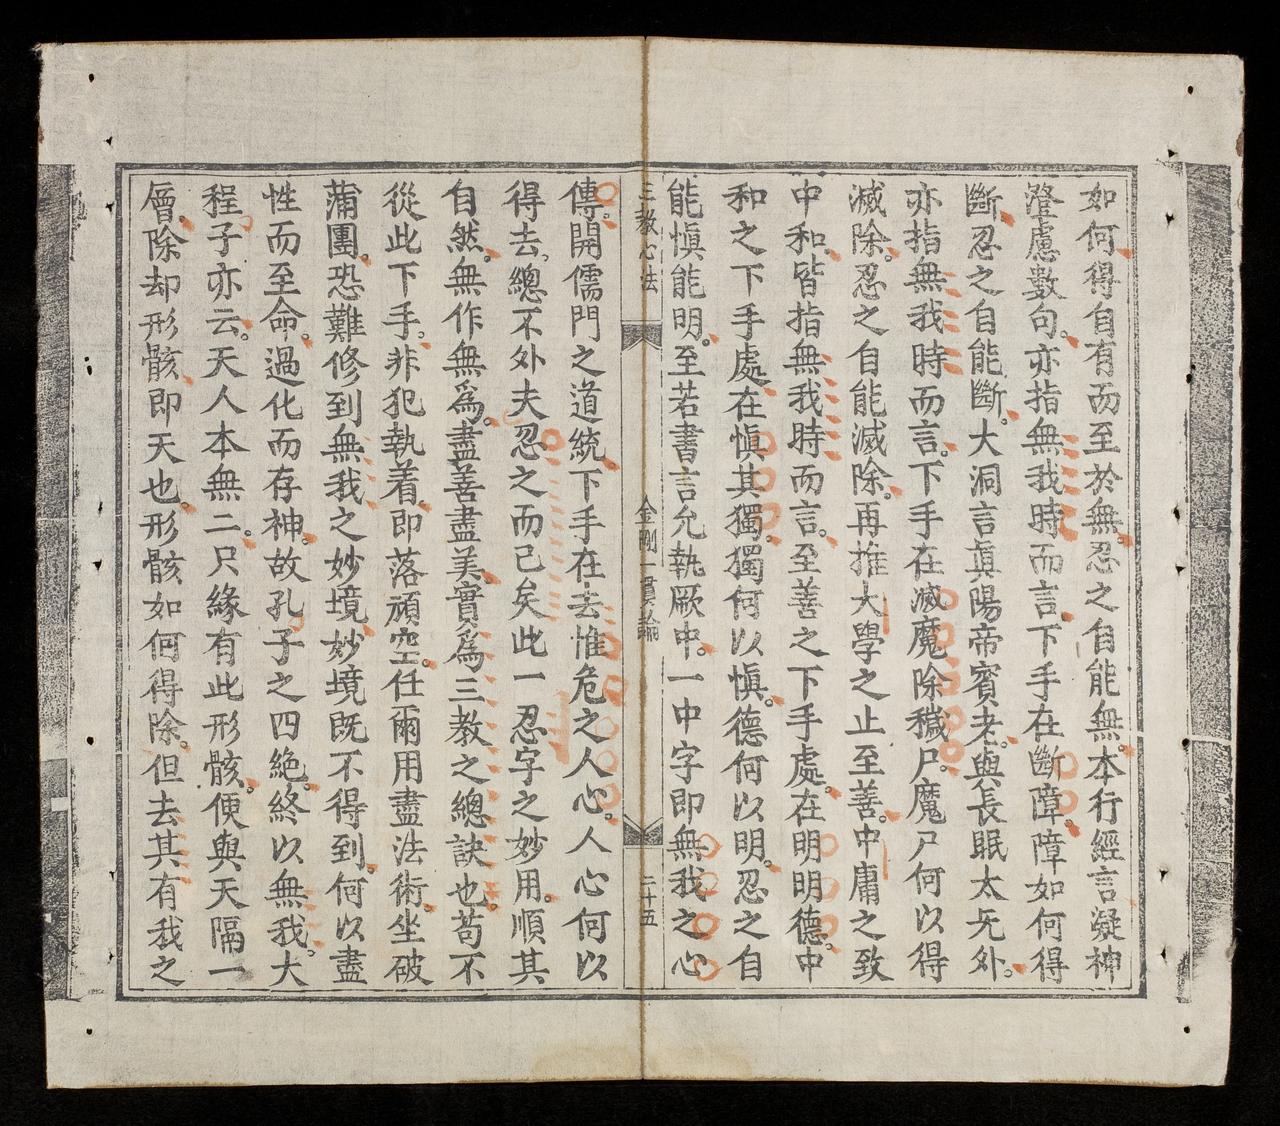 如何得自有而至於無。忍之自能無。本行經言凝神
澄慮數句。亦指無我時而言。下手在斷障。障如何得
斷。忍之自能斷。大洞言眞陽帝賓老。與長眠太无外。
亦指無我時而言。下手在滅魔除穢尸。魔尸何以得
滅除。忍之自能滅除。再推大學之止至善。中庸之致
中和。皆指無我時而言。至善之下手處。在明明德。中
和之下手處。在愼其獨。獨何以愼。德何以明。忍之自
能愼能明。至若書言允執厥中。一中字即無我之心
三教心法 金剛一貫論 二十五
傳。開儒門之道統。下手在去惟危之人心。人心何以
得去。總不外夫忍之而已矣。此一忍字之妙用。順其
自然。無作無爲。盡善盡美。實爲三教之總訣也。苟不
從此下手。非犯執着。即落頑空。任爾用盡法術。坐破
蒲團。恐難修到無我之妙境。妙境既不得到。何以盡
性而至命。過化而存神。故孔子之四絶。終以無我。大
程子亦云。天人本無二。只緣有此形骸。便與天隔一
層。除却形骸。即天也。形骸如何得除。但去其有我之